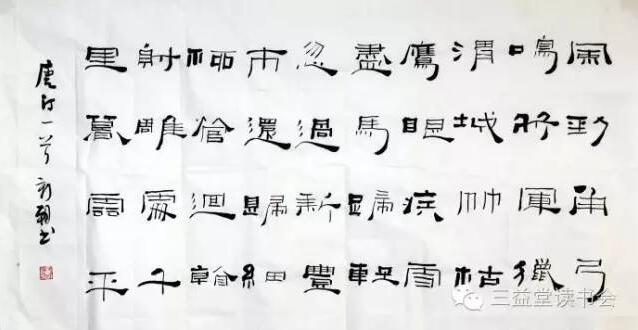 風勁角弓
鳴將軍獵
渭城艸枯
鷹眼疾雪
盡馬蹄輕
忽過新豐
市還歸細
柳營迴看
射雕處千
里暮雲平
唐詩一首 新 书
三益堂读书会